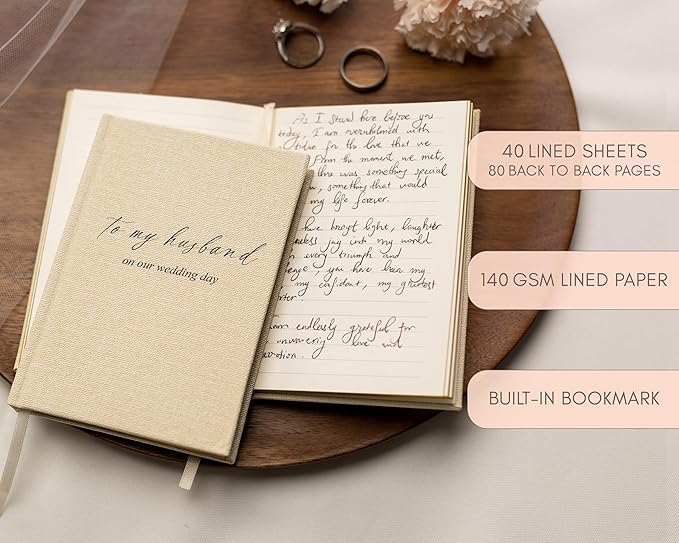 to my husband
on our wedding day
As I stand here before you
today, I am overwhelmed with
for the love that we
From the moment we met,
there was something special
something that would
my life forever.
have brought light, laughter
joy int my world
every triumph and
you have been my
my confidant, my greatest
endlessly grateful for
love and
40 LINED SHEETS
80 BACK TO BACK PAGES
140 GSM LINED PAPER
BUILT-IN BOOKMARK